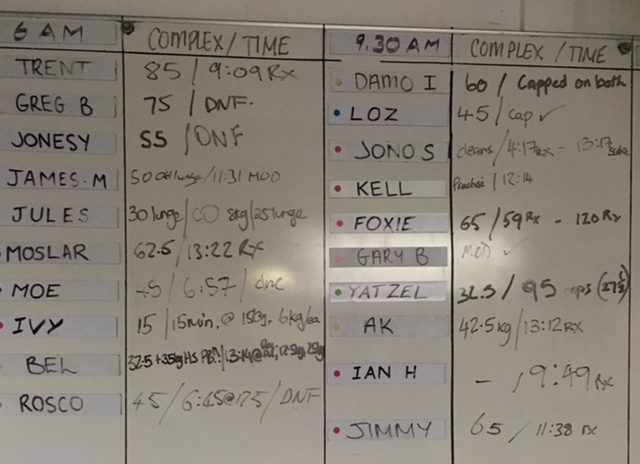 6 AM COMPLEX/TIME
TRENT 85 / 9:09 Rx
GREG. B 75 / DNF.
JONESY 55 / DNF
JAMES. M 50 lunge/11:31 MOD
JULES 30 lunge/ 8kg/25lunge
MOSLAR 62.5 / 13:22 RX
MOE 45 / 6:57 /
IVY 15 / 15min, @ 15kg, 6kg
BEL 32.5 + 35kg HS PB
ROSCO 45 / 6:45@ / DNF
9.30 AM COMPLEX / TIME
DAMO I 60 / Capped on both
LOZ 45 / cap ✓
JONO S cleans/4:17Rx - 13:17
KELL / 12:14
FOXIE 65 / 59 Rx - 120 Rx
GARY B MOD ✓
YATZEL 32.5 / 95
AK 42.5kg / 13:12 RX
IAN H - / 9:49 Rx
JIMMY 65 / 11:38 rx